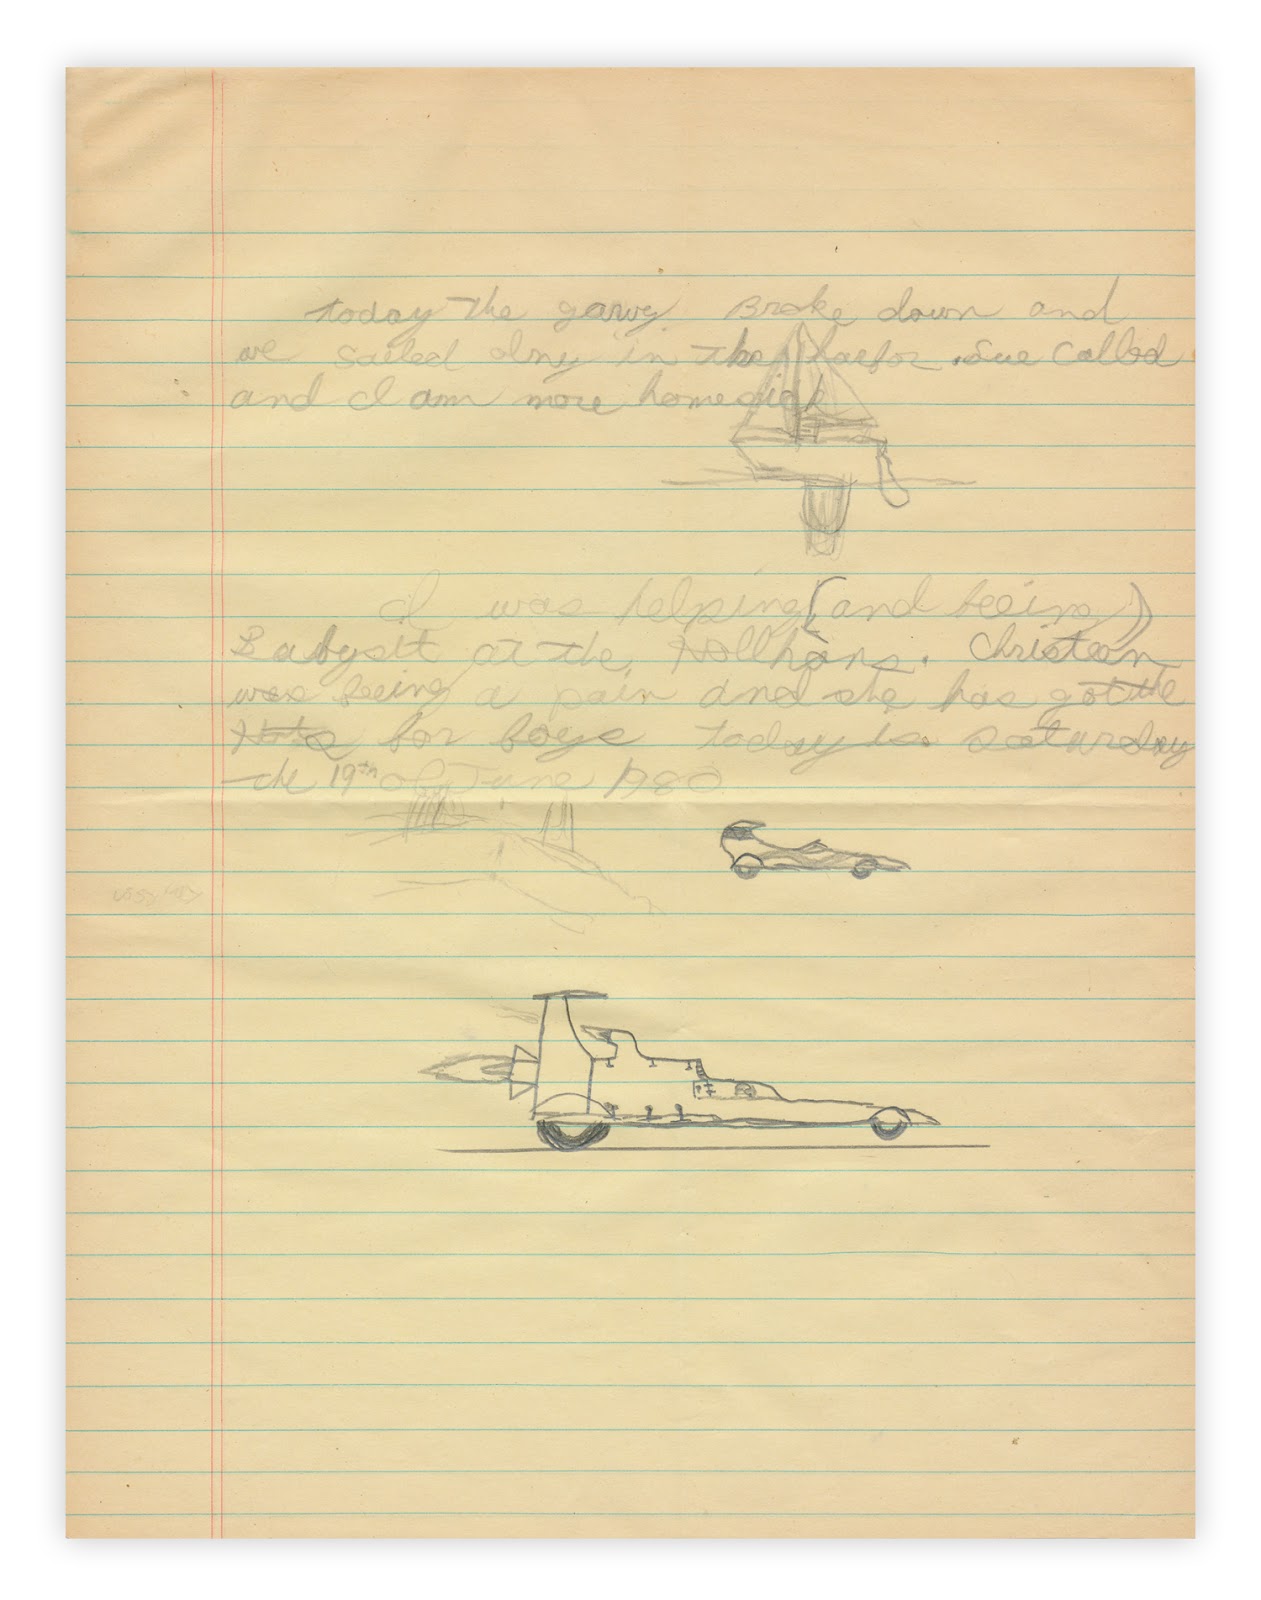 today the garvey Broke down and
we sailed alone in the Harfor. Sue Called
and I am more homesick
I was helping (and being)
Babysitt at the Hollhans. Christean
was being a pain and she has got the
Hots for boys today is Saturday
the 19th of June 1980